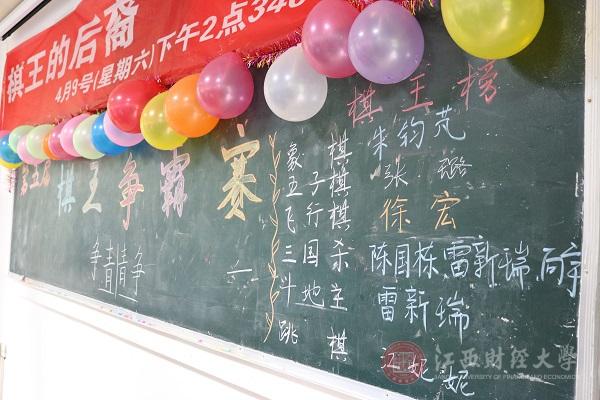 棋王的后裔
4月9号(星期六)下午2点
棋王争霸赛
争青青争
棋王榜
象棋 朱钧芃
五子棋 张璐
飞行棋 徐宏
三国杀 陈国栋,雷新瑞,
斗地主 雷新瑞
跳棋 江妮妮
江西财经大学
JIANGXI UNIVERSITY OF FINANCE AND ECONOMICS